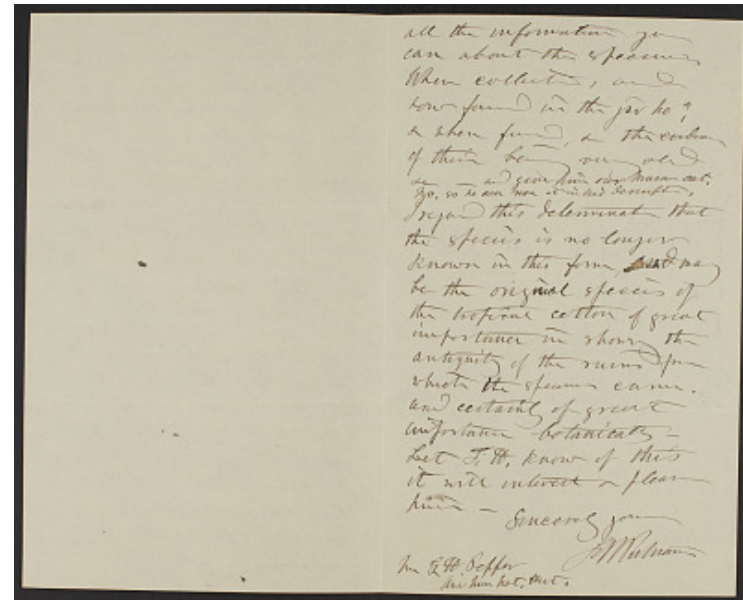 all the information you
can about the specimens
When collected, and
how found in the
& when found, & the evidence
of their being very old
& — and give him our museum cat.
No. so he can use it in his descript.
I regard this determination that
the species is no longer
known in this form, and may
be the original species of
the tropical cotton of great
importance in showing the
antiquity of the ruins from
which the specimens came.
and certainly of great
importance botanically —
Let F. H. know of this
it will interest & please
him —
Sincerely yours
F W Putnam
Mr G. H. Pepper
Am. Mus. Nat. Hist.